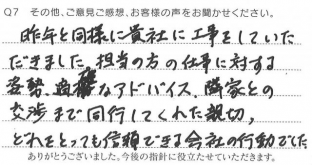 Q7 その他、ご意見ご感想、お客様の声をお聞かせください。
昨年と同様に貴社に工事をしていた
だきました。担当の方の仕事に対する
姿勢、適確なアドバイス、隣家との
交渉まで同行してくれた親切、
どれをとっても信頼できる会社の行動でした
ありがとうございました。今後の指針に役立たせていただきます。